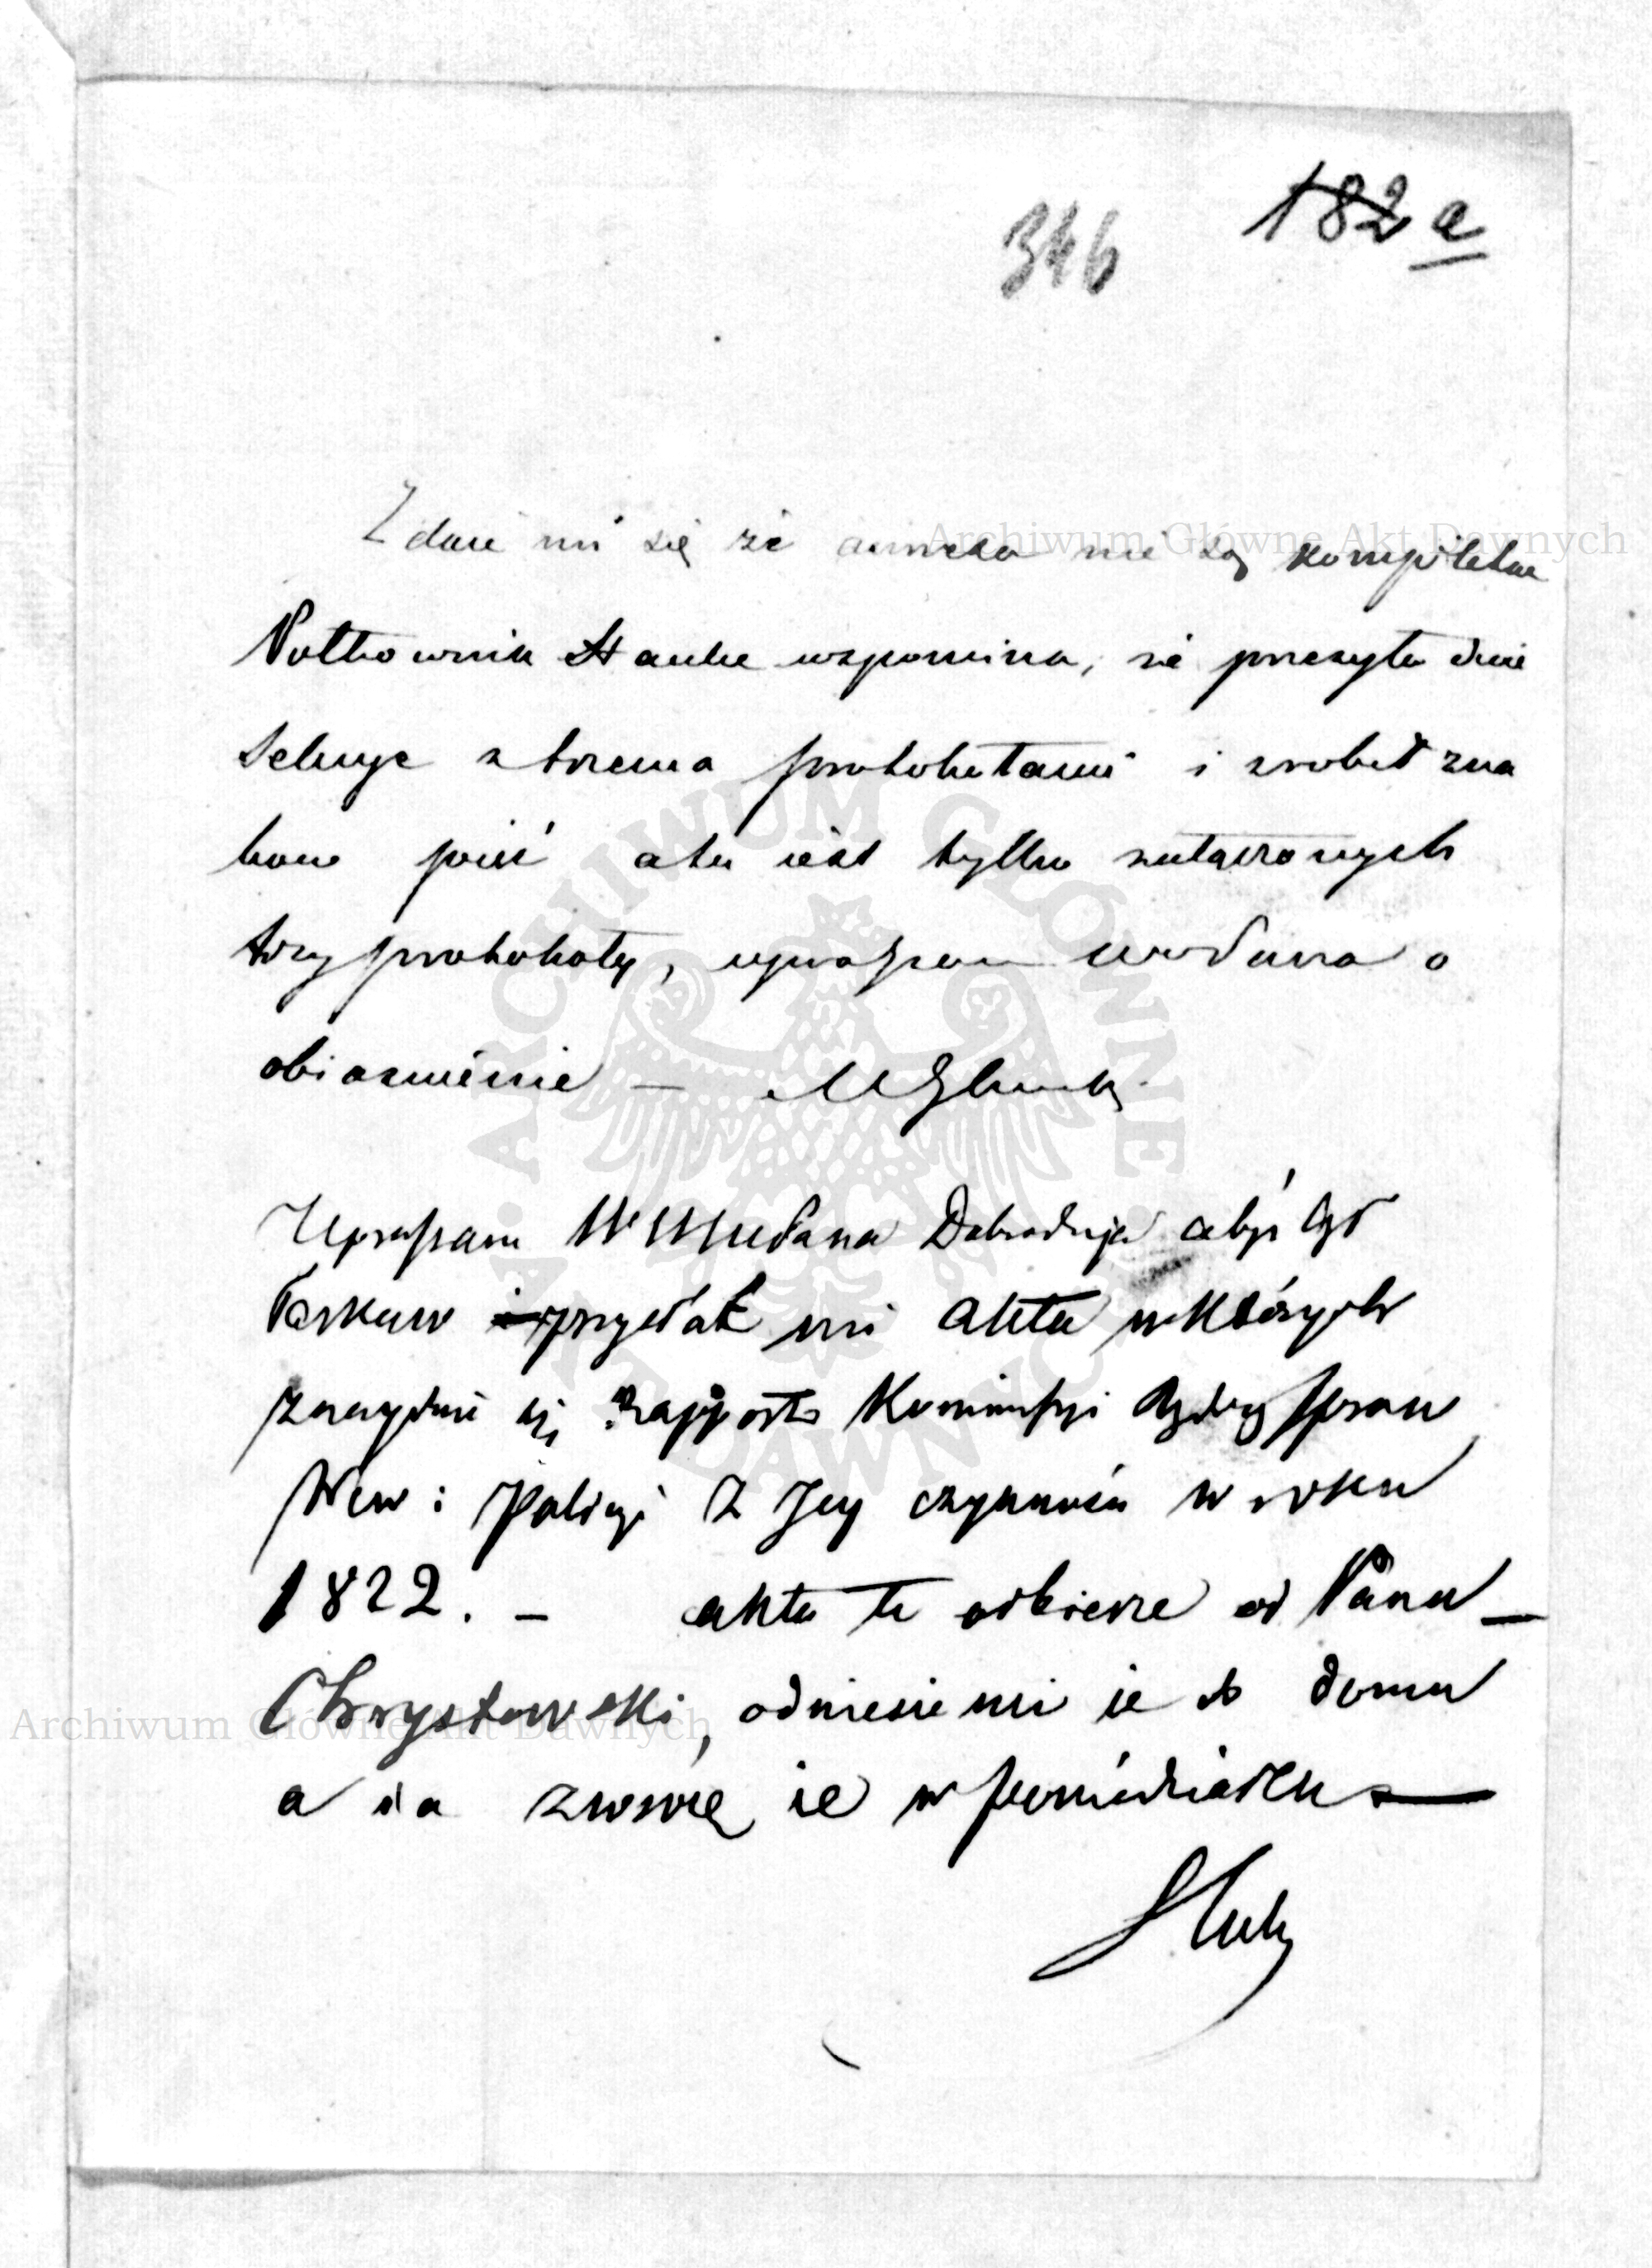 182 a
346
Zdaie mi się że annexa nie są kompletne
Półkownik Hauke wspomina, że przesyła dwie
z trzema protokułami i zrobił zna
tylko załączonych
trzy protokoły, upraszam WoPana o
obiasnienie —
Upraszam WPana Dobrodzieja abyś był
łaskaw przysłać mi akta w których
znayduie się Rapport Kommissyi Rządzy Spraw
Wew i Policyi z Jey czynności w roku
1822. — akta te odbierze od Pana —
Chrystowski, odniesie mi ie do domu
a ia zwrócę ie w poniedziałek —
Archiwum Główne Akt Dawnych
Archiwum Główne Akt Dawnych
ARCHIWUM GŁÓWNE AKT DAWNYCH